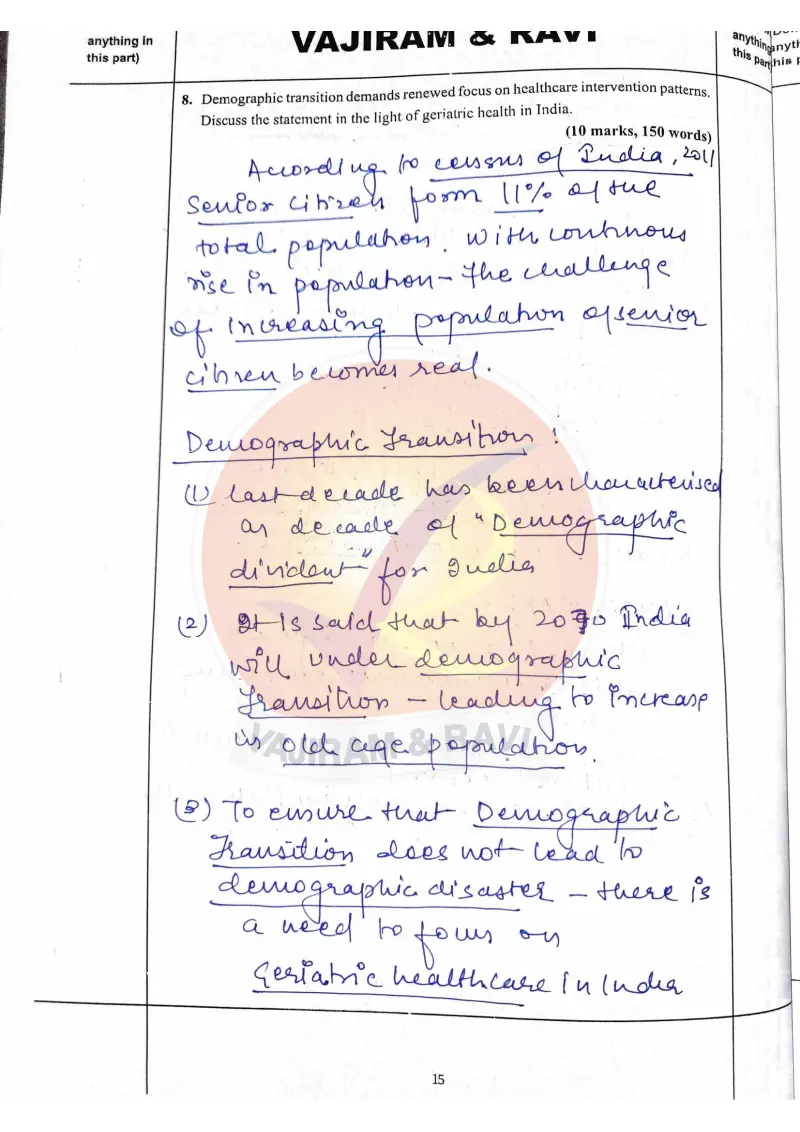 anything in
this part)
VAJIRAM & RAVI
anything
this part
8. Demographic transition demands renewed focus on healthcare intervention patterns.
Discuss the statement in the light of geriatric health in India.
(10 marks, 150 words)
According to census of India, 2011
Senior citizen form 11% of the
total population. With continuous
rise in population – the challenge
of increasing population of senior
citizen becomes real.
Demographic Transition :
(1) Last decade has been characterised
as decade of "Demographic
divident" for India
(2) It is said that by 2070 India
will under demographic
transition – leading to increase
in old age population.
VAJIRAM & RAVI
(3) To ensure that Demographic
Transition does not lead to
demographic disaster – there is
a need to focus on
geriatric healthcare in India
15